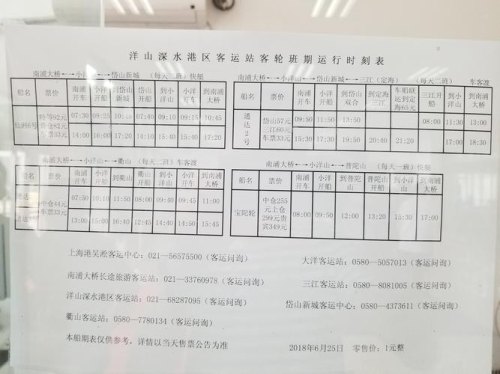 洋山深水港区客运站客轮班期运行时刻表
南浦大桥←→小洋山←→岱山新城 （每天二班）快艇
船名 票价 南浦开车 小洋开船 到岱山新城 岱山开船 到小洋山 小洋开车 到南浦大桥
07:30 09:15 09:15 10:45
14:00 16:00 17:20 14:10 15:40
南浦大桥←→小洋山←→岱山新城←→三江(定海) （每天二班） 车客渡
船名 票价 南浦开车 小洋开船 到岱山双合 到定海三江 三江开船 到小洋山 到南浦大桥
岱山57元
08:00 11:30 13:00
20:40 21:20 17:00 18:30
南浦大桥←→小洋山←→衢山 （每天二班）车客渡
船名 票价 南浦开车 小洋开船 到衢山 衢山开船 到小洋山 小洋开车 到南浦大桥
07:50 10:10 11:50 08:00 09:45 11:00
13:00 15:05 16:40 12:45 14:50 15:45
南浦大桥←→小洋山←→普陀山 （每天一班）快艇
船名 票价 南浦开车 小洋开船 到普陀山 普陀山开船 到小洋山 小洋开车 到南浦大桥
宝陀轮 中仓255元上仓299元贵宾349元 08:00 09:50 12:00 13:20 15:30 17:00
上海港吴淞客运中心：021—56575500（客运问询）
大洋客运站：0580—5057013（客运问询）
南浦大桥长途旅游客运站：021—33760978（客运问询）
三江客运站：0580—8081005（客运问询）
洋山深水港区客运站：021—68287095（客运问询）
岱山新城客运中心：0580—4373611（客运问询）
衢山客运站：0580—7780134（客运问询）
本船期表仅供参考，详情以当天售票公告为准
2018年6月25日 零售价：1元整